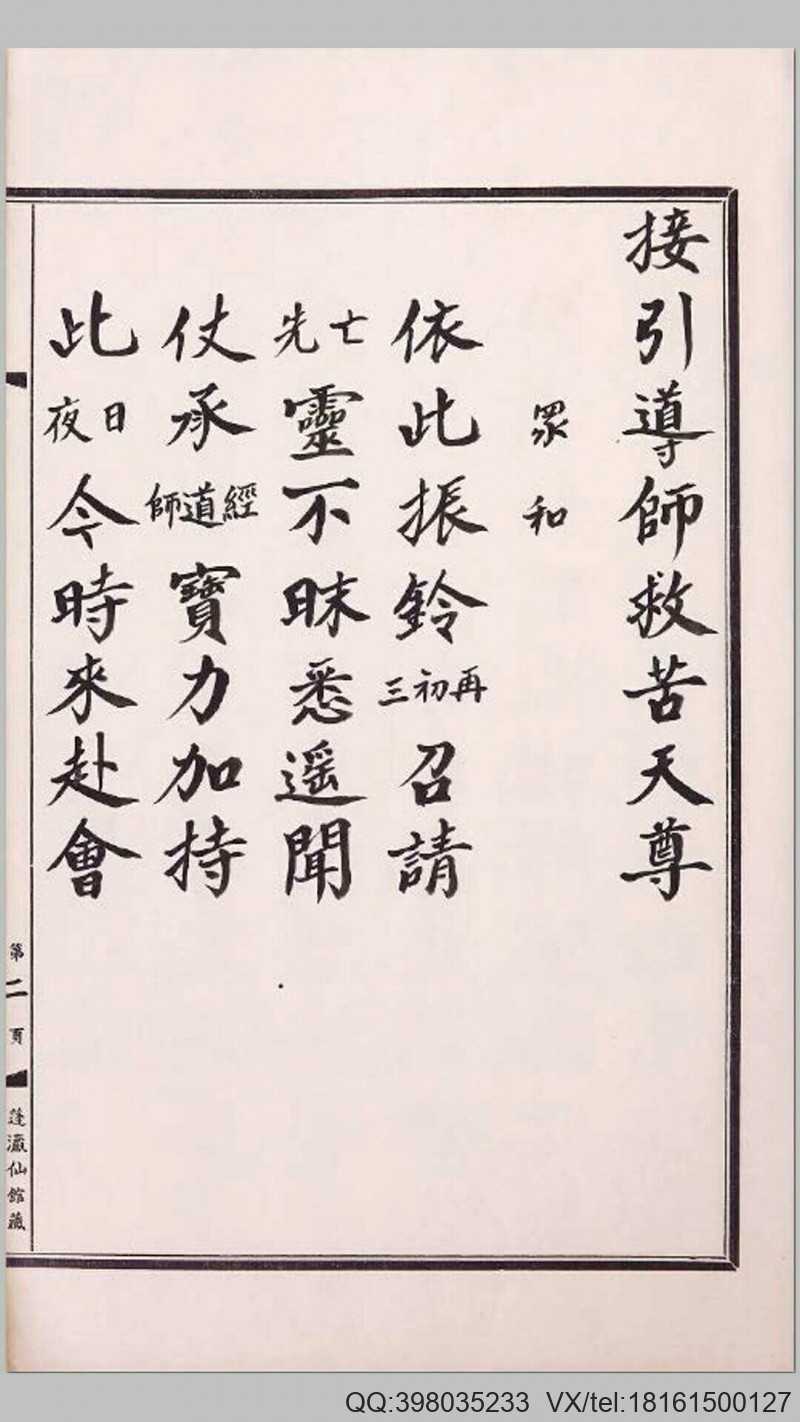 接引導師救苦天尊
眾和
依此振鈴再初三召請
亡先靈不昧悉遥聞
仗承經道師寶力加持
此日夜今時來赴會
第二頁
蓬瀛仙館藏
QQ:398035233 VX/tel:18161500127